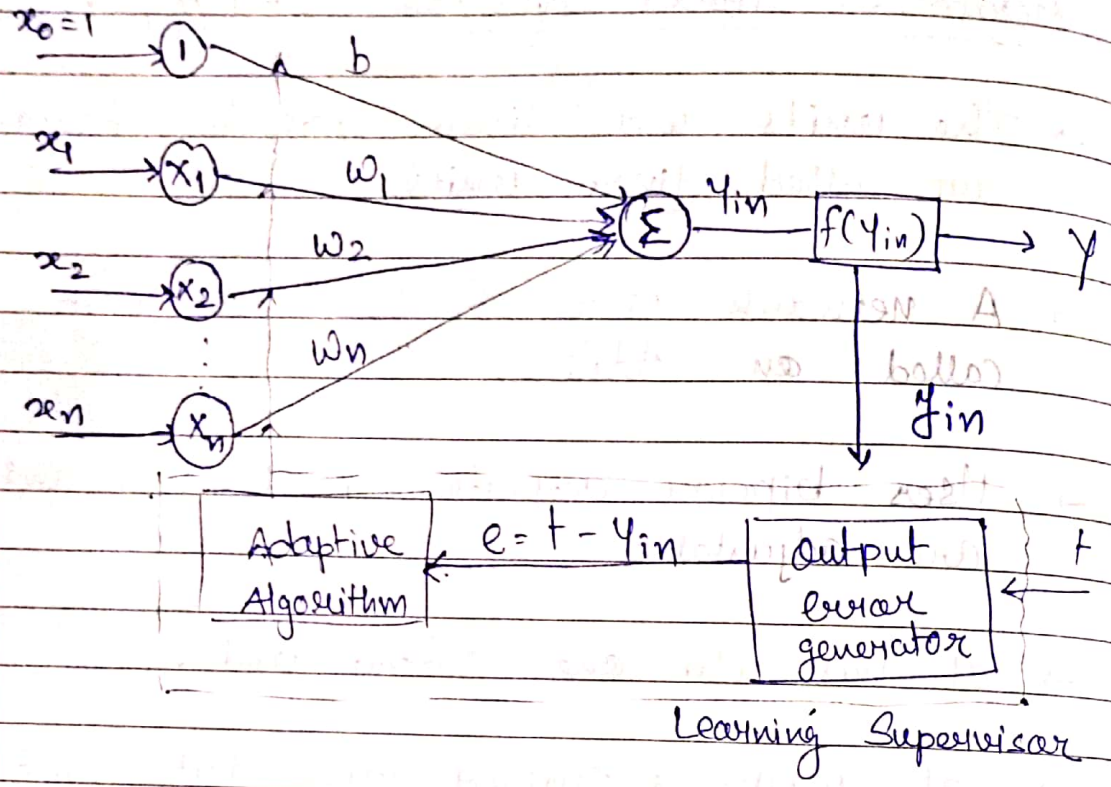 x₀=1
1
b
x₁
X₁
w₁
x₂
X₂
w₂
⋮
xₙ
Xₙ
wₙ
Σ
yin
f(yin)
y
yin
Adaptive
Algorithm
e = t - yin
output
error
generator
t
Learning Supervisor